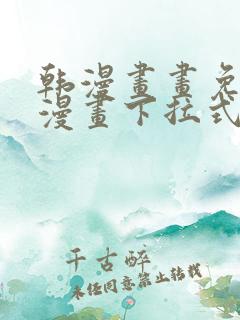 韩漫畫畫免
漫畫下拉式
千古醉
未经同意禁止转载